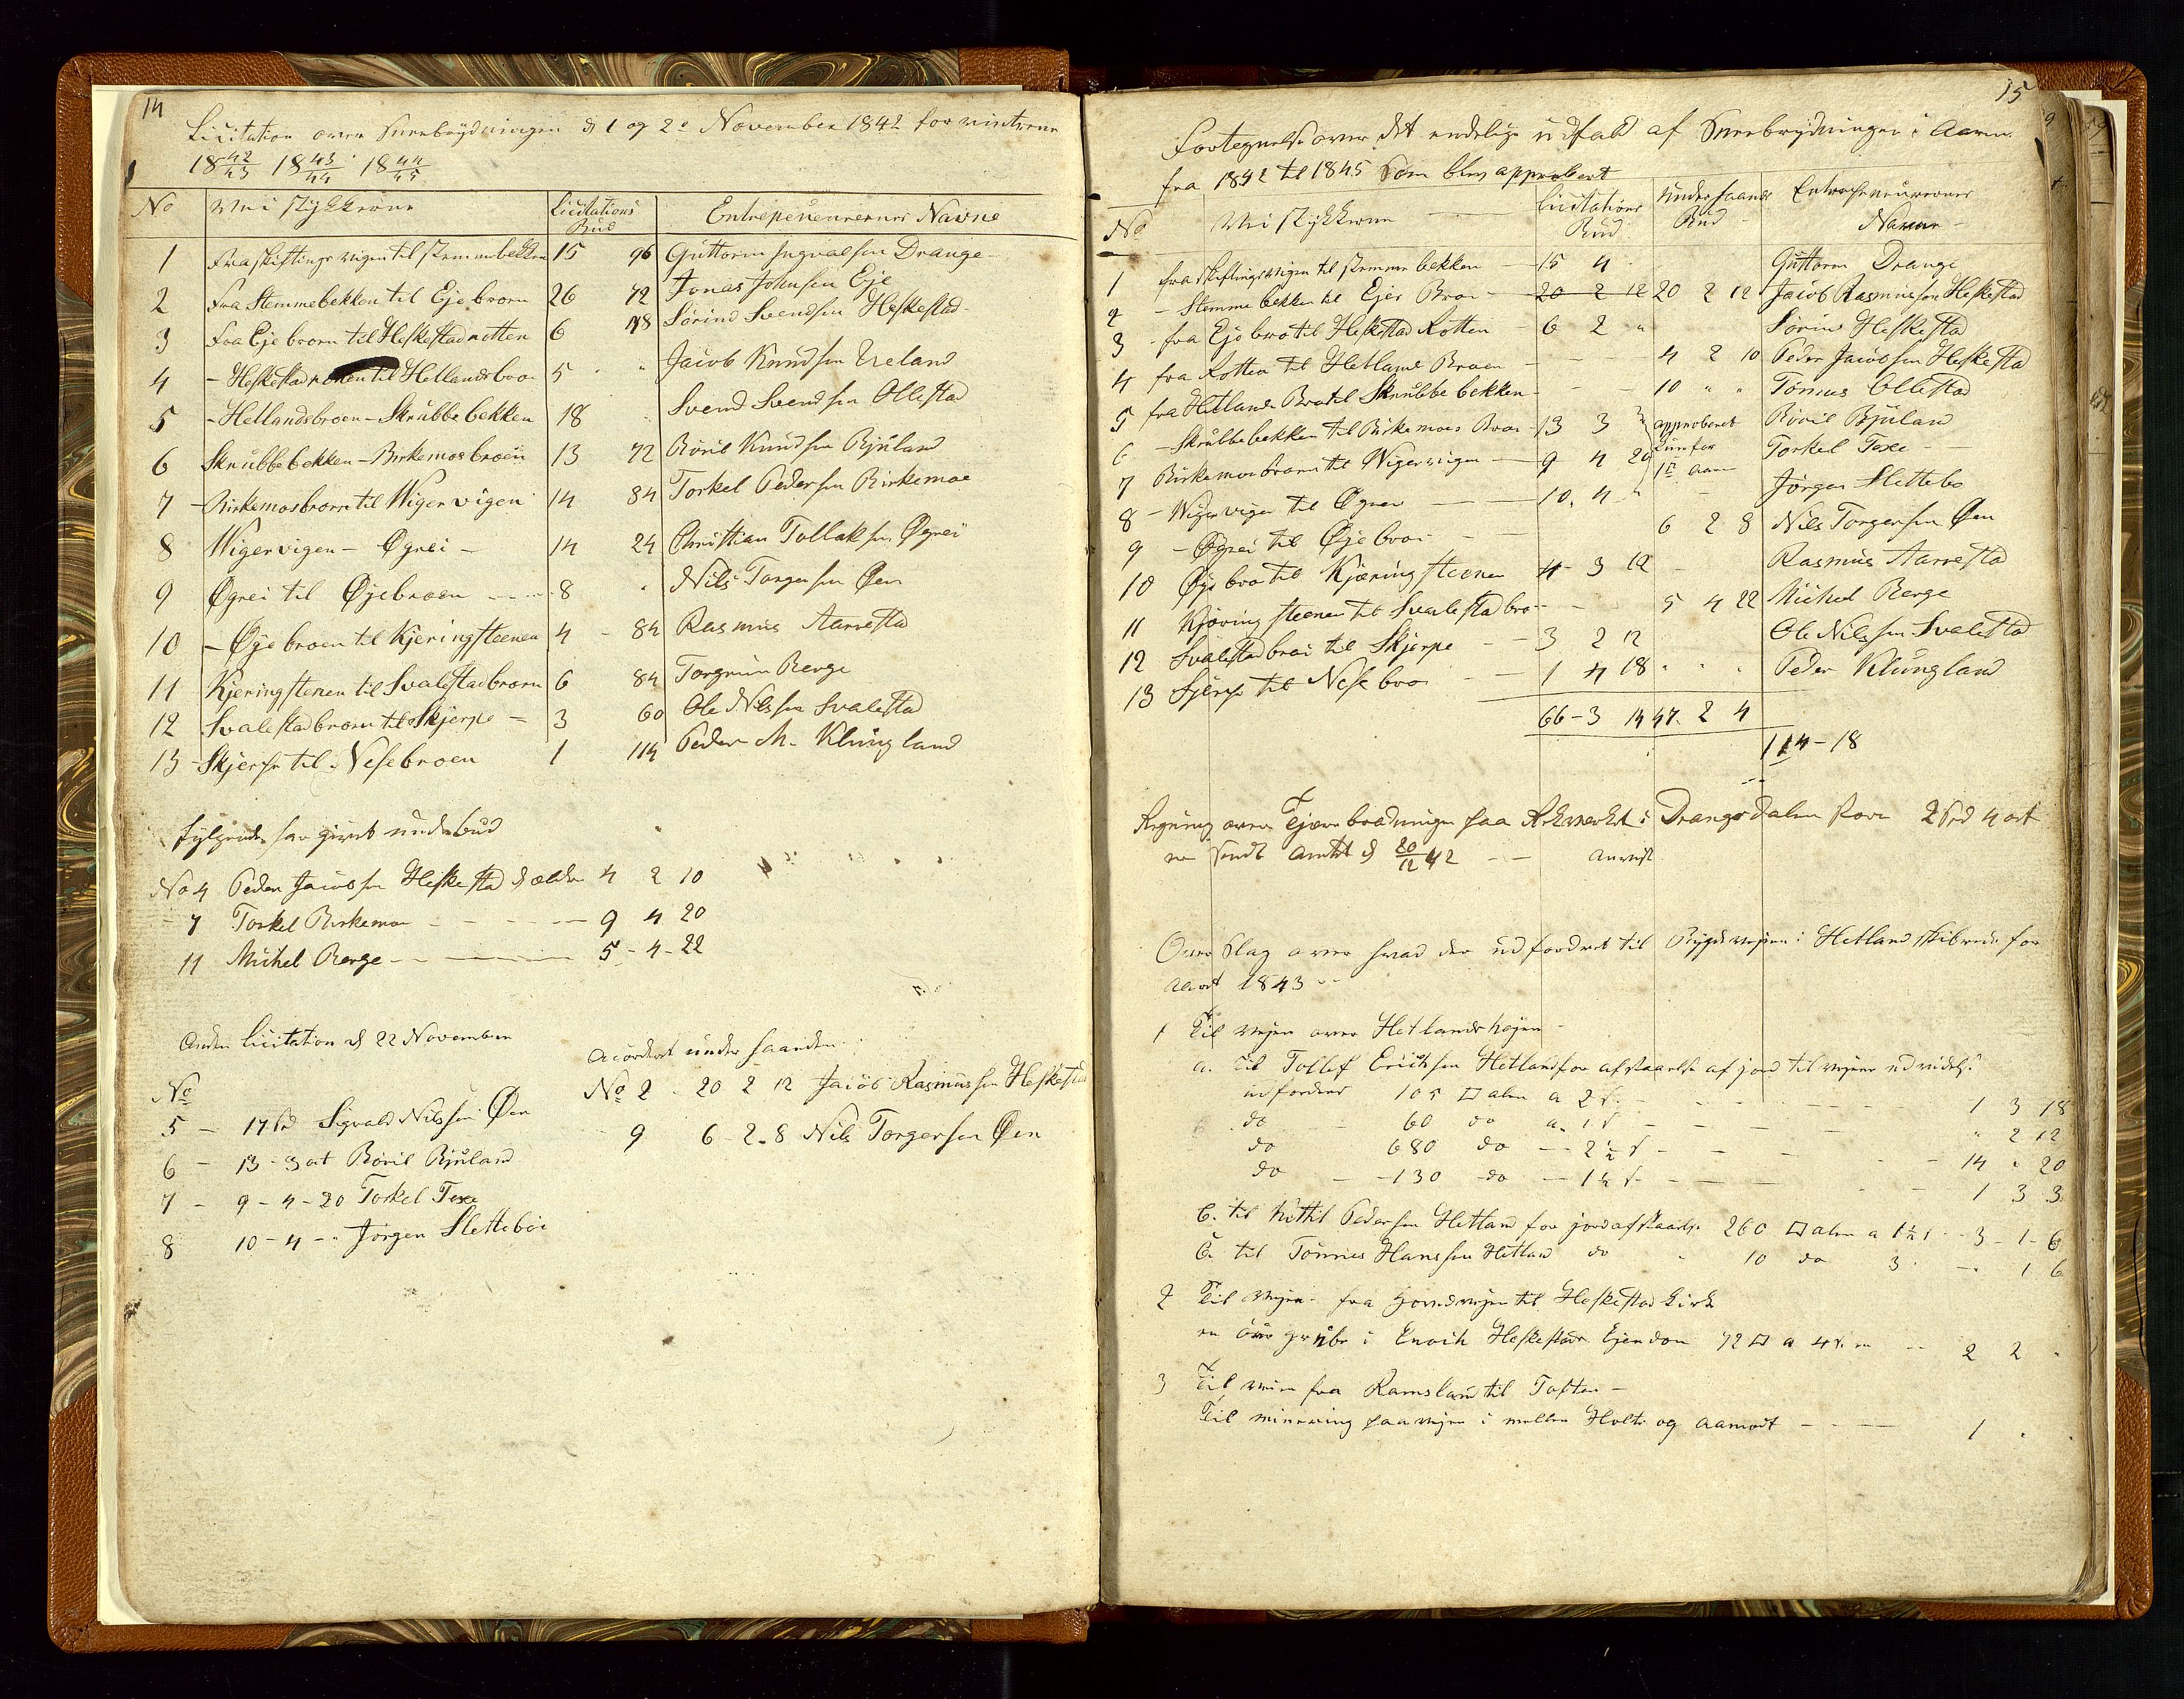 14
Licitation over Sneebrydningen d 1 og 2e November 1842 for vintrene
18 42/43 18 43/44 18 44/45
No Vei stykkerne Licitations Bud Entrepeneurernes Navne
1 Fra skiftingsvigen til Stemmebekken 15 96 Guttorm Ingvalsen Drange
2 Fra Stemmebekken til Eje broen 26 72 Jonas Johnsen Eje
3 Fra Eje broen til Heskestad rotten 6 48 Sörind Svendsen Heskestad
4 - Heskestad rotten til Hetlandsbroe 5 " " Jacob Knudsen Ureland
5 - Hetlandsbroen - Skrubbebekken 18 " Svend Svendsen Ollestad
6 Skrubbebekken - Birkemosbroen 13 72 Bövil Knudsen Bjuland
7 - Birkemosbroen til Wigervigen 14 84 Torkel Pedersen Birkemoe
8 Wigervigen - Øgrei - 14 24 Christian Tollaksen Øgrei
9 Øgrei til Øjebroen - - - 8 " Nils Torgersen Øen
10 - Øyebroen til Kjeringsteenen 4 - 84 Rasmus Aarrestad
11 Kjeringstenen til Svalestadbroen 6 84 Torgrim Berge
12 Svalestadbroen til Skjerpe - 3 60 Ole Nilssen Svalestad
13 - Skjerpe til Nesebroen 1 114 Peder M. Klungland
følgende har givet underbud
No 4 Peder Jacobsen Heskestad d ældre 4 2 10
- 7 Torkel Birkemoe - - - - 9 4 20
11 Michel Berge - - - 5 - 4 - 22
Anden Licitation d 22 November
No
5 - 17 Sp Sigvald Nilssen Øen
6 - 13 - 3 ort Bövil Bjuland
7 - 9 - 4 - 20 Torkel Texe
8 10 - 4 - " Jörgen Slettebö
Acordert under haanden
No 2 - 20 2 12 Jacob Rasmussen Heskestad
- 9 6 - 2 - 8 Nils Torgersen Øen
15
Fortegnelse over det endelige udfald af Sneebrydningen i Aarene
fra 1842 til 1845 Som blev approbert
No Vei stykkerne Licitations Bud Underhaands Bud Entrepreneurernes Navne
1 fra Skiftingsvigen til stemme bekken - 15 4 Guttorm Drange
2 - Stemme bekken til Eje Broe - 20 2 12 20 2 12 Jacob Rasmussen Heskestad
3 - fra Eje bro til Heskestad Rotten - 6 2 " Sörine Heskestad
4 fra Rotten til Hetlands Broen - - 4 2 10 Peder Jacobsen Heskestad
5 fra Hetlands Bro til Skrubbe bekken - - - 10 " " Tönnes Ollestad
6 - Skrubbebekken til Birkemoes Broe - 13 3 " approberet Bövil Bjuland
7 Birkemosbroen til Wigervigen - 9 4 20 kun for 1te Aar Torkel Texe
8 - Wigervigen til Øgrei - - - 10. 4 " - Jörgen Slettebö
9 - Øgrei til Øjebroe - - 6 2 8 Nils Torgersen Øen
10 Øje bro til Kjæringsteenen 4 - 3 12 - Rasmus Aarrestad
11 Kjæringsteenen til Svalestadbro - - - 5 4 22 Michel Berge
12 Svalestadbroe til Skjerpe - - 3 2 12 Ole Nilssen Svalestad
13 Skjerpe til Nese bro - - 1 4 18 " " " Peder Klungland
66 - 3 14 47. 2 4
114 - 18
Regning over Tjære bredningen paa Rekverket i Drangsdalen stor 2 Spd 4 ort
er sendt Amtet d 20/12 42 - - anvist
Over Slag over hvad der udfordret til Bygdeveien i Hetland skibrede for
Aaret 1843 - -
1 Til veien over Hetlandshejen -
a. Til Tollef Erichsen Hetland for afstaaelse af jord til veiens udvidelse
udfordres 105 □ alen a 2 s. - - - - 1 3 18
do - 60 do a. 1 s - - - - " 2 12
do 680 do - - 2 1/2 s - - - - 14 " 20
do - - 130 - do - - 1 1/2 s - - - - 1 3 3
b. til Kittil Pedersen Hetland for jordafstaaelse 260 □ alen a 1 1/2 s - 3 - 1 - 6
c. til Tönnes Hanssen Hetland do " 10 do 3 " - 1 6
2 Til Veien fra Hovedveien til Heskestad kirke
en öer grube i Enoch Heskestads Ejendom 72 □ a 4 s. - - 2 2 "
3 Til veien fra Ramsland til Toften -
Til minering paa veien i mellem Holte og Aamodt - - - 1 " "